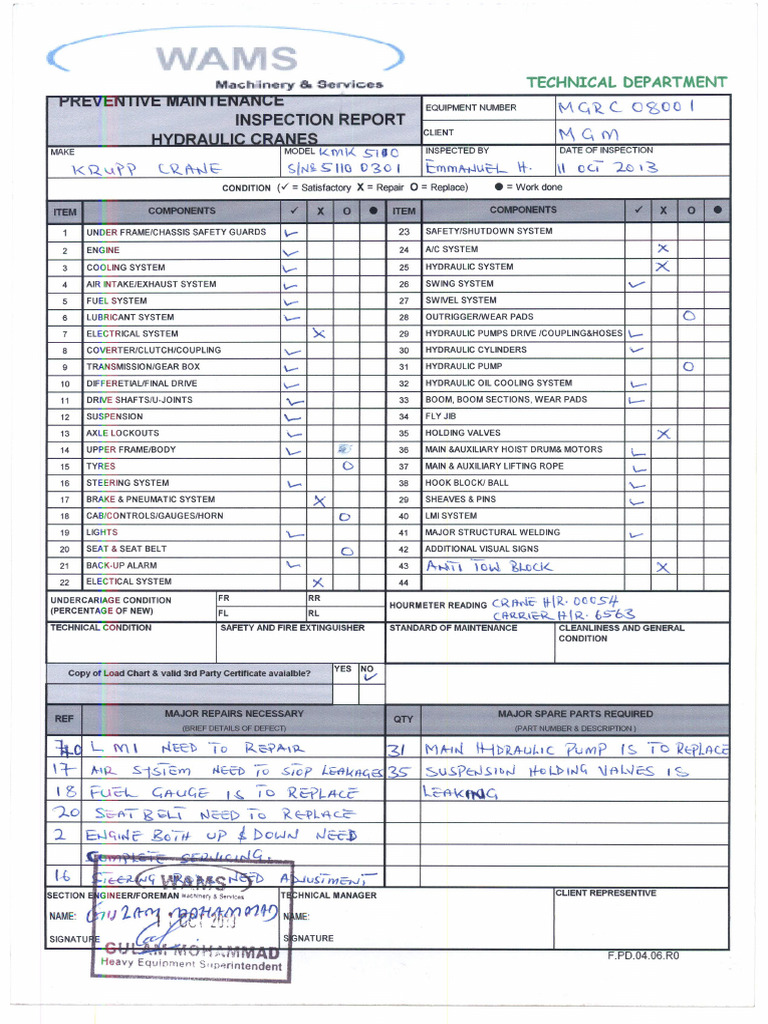 WAMS
Machinery & Services
TECHNICAL DEPARTMENT
PREVENTIVE MAINTENANCE
INSPECTION REPORT
HYDRAULIC CRANES
EQUIPMENT NUMBER MGRC 08001
CLIENT MGM
MAKE KRUPP CRANE
MODEL KMK 5110
S/No 5110 0301
INSPECTED BY EMMANUEL H.
DATE OF INSPECTION 11 OCT 2013
CONDITION (✓ = Satisfactory X = Repair O = Replace) ● = Work done
ITEM COMPONENTS ✓ X O ● ITEM COMPONENTS ✓ X O ●
1 UNDER FRAME/CHASSIS SAFETY GUARDS ✓ 23 SAFETY/SHUTDOWN SYSTEM
2 ENGINE ✓ 24 A/C SYSTEM X
3 COOLING SYSTEM ✓ 25 HYDRAULIC SYSTEM X
4 AIR INTAKE/EXHAUST SYSTEM ✓ 26 SWING SYSTEM ✓
5 FUEL SYSTEM ✓ 27 SWIVEL SYSTEM
6 LUBRICANT SYSTEM ✓ 28 OUTRIGGER/WEAR PADS O
7 ELECTRICAL SYSTEM X 29 HYDRAULIC PUMPS DRIVE /COUPLING&HOSES ✓
8 COVERTER/CLUTCH/COUPLING ✓ 30 HYDRAULIC CYLINDERS ✓
9 TRANSMISSION/GEAR BOX ✓ 31 HYDRAULIC PUMP O
10 DIFFERETIAL/FINAL DRIVE ✓ 32 HYDRAULIC OIL COOLING SYSTEM ✓
11 DRIVE SHAFTS/U-JOINTS ✓ 33 BOOM, BOOM SECTIONS, WEAR PADS ✓
12 SUSPENSION ✓ 34 FLY JIB
13 AXLE LOCKOUTS ✓ 35 HOLDING VALVES X
14 UPPER FRAME/BODY ✓ 36 MAIN &AUXILIARY HOIST DRUM& MOTORS ✓
15 TYRES O 37 MAIN & AUXILIARY LIFTING ROPE ✓
16 STEERING SYSTEM ✓ 38 HOOK BLOCK/ BALL ✓
17 BRAKE & PNEUMATIC SYSTEM X 29 SHEAVES & PINS ✓
18 CAB/CONTROLS/GAUGES/HORN O 40 LMI SYSTEM
19 LIGHTS ✓ 41 MAJOR STRUCTURAL WELDING ✓
20 SEAT & SEAT BELT O 42 ADDITIONAL VISUAL SIGNS
21 BACK-UP ALARM ✓ 43 ANTI TOW BLOCK X
22 ELECTICAL SYSTEM X 44
UNDERCARIAGE CONDITION (PERCENTAGE OF NEW) FR RR
FL RL
HOURMETER READING CRANE H/R. 00054
CARRIER H/R. 6563
TECHNICAL CONDITION SAFETY AND FIRE EXTINGUISHER STANDARD OF MAINTENANCE CLEANLINESS AND GENERAL CONDITION
Copy of Load Chart & valid 3rd Party Certificate avaialble? YES NO ✓
REF MAJOR REPAIRS NECESSARY QTY MAJOR SPARE PARTS REQUIRED
(BRIEF DETAILS OF DEFECT) (PART NUMBER & DESCRIPTION )
LMI NEED TO REPAIR 31 MAIN HYDRAULIC PUMP IS TO REPLACE
17 AIR SYSTEM NEED TO STOP LEAKAGES 35 SUSPENSION HOLDING VALVES IS
18 FUEL GAUGE IS TO REPLACE LEAKING
20 SEAT BELT NEED TO REPLACE
2 ENGINE BOTH UP & DOWN NEED
COMPLETE SERVICING.
16 STEERING NEED ADJUSTMENT
WAMS
Machinery & Services
SECTION ENGINEER/FOREMAN TECHNICAL MANAGER CLIENT REPRESENTATIVE
NAME: GULAM MOHAMMAD NAME:
OCT 2013
SIGNATURE SIGNATURE
GULAM MOHAMMAD
Heavy Equipment Superintendent
F.PD.04.06.R0